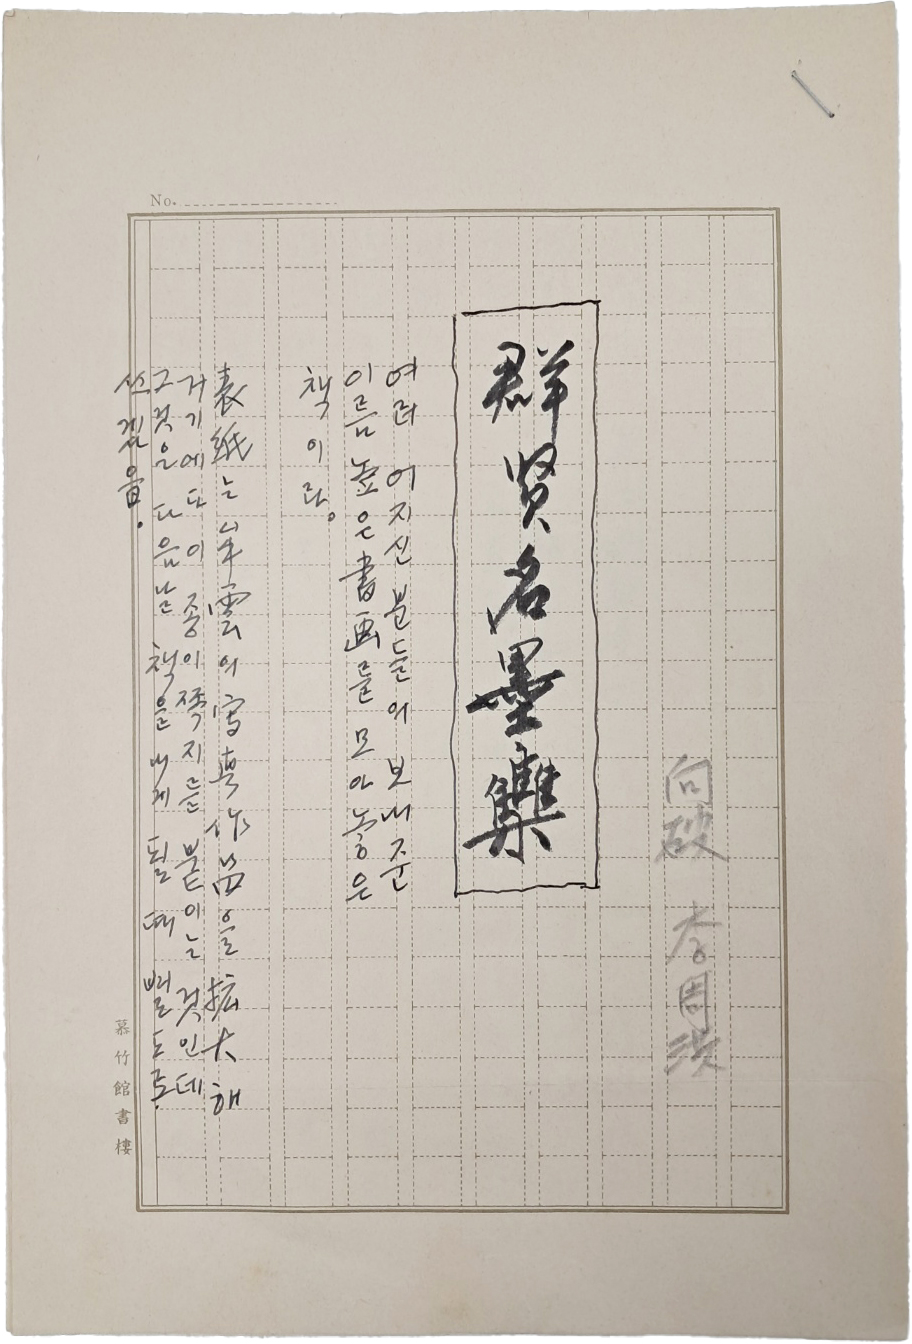 No.
向破 李周洪
群賢名墨集
여러 어지신 분들의 보내준
이름 높은 書画를 모아 놓은
책이라。
表紙는 牟雲의 寫真作品을 拡大해
거기에다 이 종이쪽지를 붙이는 것인데
그것은 다음날 책을 내게 될 때 빼도록.
쓰겠음.
慕竹館書樓